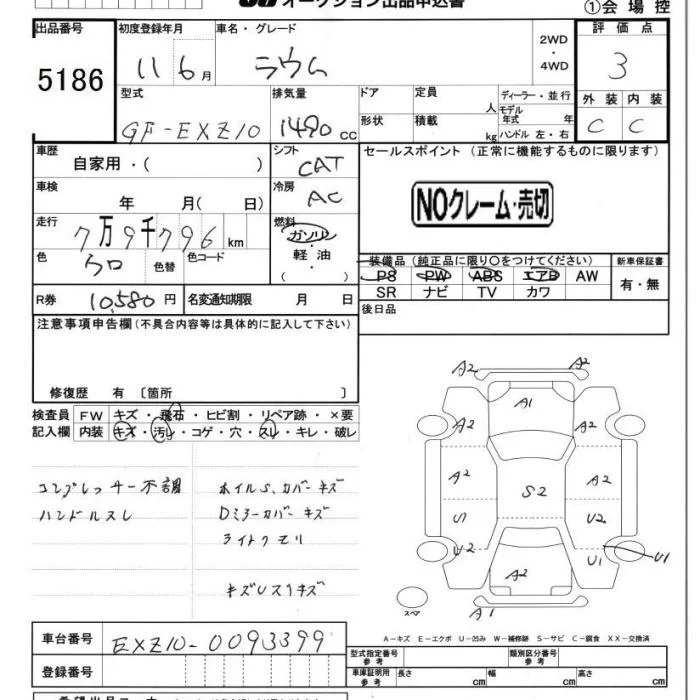 オークション出品申込書
①会場控
出品番号 初度登録年月 車名・グレード 2WD・4WD 評価点
5186 11 6月 ラウム 3
型式 排気量 ドア 定員 人 ディーラー・並行 外装 内装
GF-EXZ10 1490cc 形状 積載 kg モデル年式 年 ハンドル 左・右 C C
車歴 自家用・( ) シフト CAT セールスポイント(正常に機能するものに限ります)
車検 年 月( 日) 冷房 AC NOクレーム・売切
走行 7万9千796km 燃料 ガソリン・軽油・
色 クロ 色替 色コード 装備品(純正品に限り○をつけてください) 新車保証書
PS PW ABS エアB AW 有・無
R券 10,580円 名変通知期限 月 日 SR ナビ TV カワ
注意事項申告欄(不具合内容等は具体的に記入して下さい) 後日品
修復歴 有〔箇所 〕
検査員 FW キズ・飛石・ヒビ割・リペア跡・×要
記入欄 内装 キズ・汚レ・コゲ・穴・スレ・キレ・破レ
コンプレッサー不調 ホイルS,カバーキズ
ハンドルスレ Dミラーカバーキズ
ライトクモリ
A2 A2
A1
A2 A2
A2 A2
S2
U1 U2
U2 U1 U1
A2
A1
スペア
A-キズ E-エクボ U-凹み W-補修跡 S-サビ C-腐食 XX-交換済
車台番号 EXZ10-0093399 型式指定番号 参考 類別区分番号 参考
登録番号 車庫証明用 参考 長さ cm 幅 cm 高さ cm